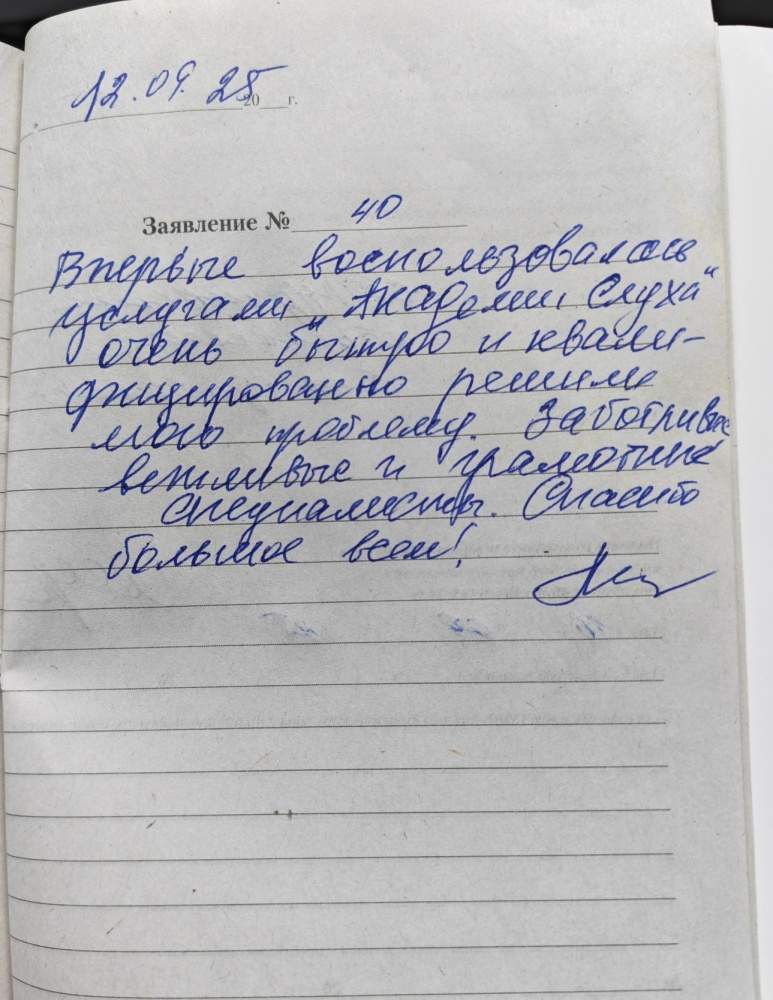 12.09.25 20 г.
Заявление № 40
Впервые воспользовалась
услугами "Академии слуха"
очень быстро и квали-
фицированно решили
мою проблему. Заботливые
вежливые и грамотные
специалисты. Спасибо
большое всем!